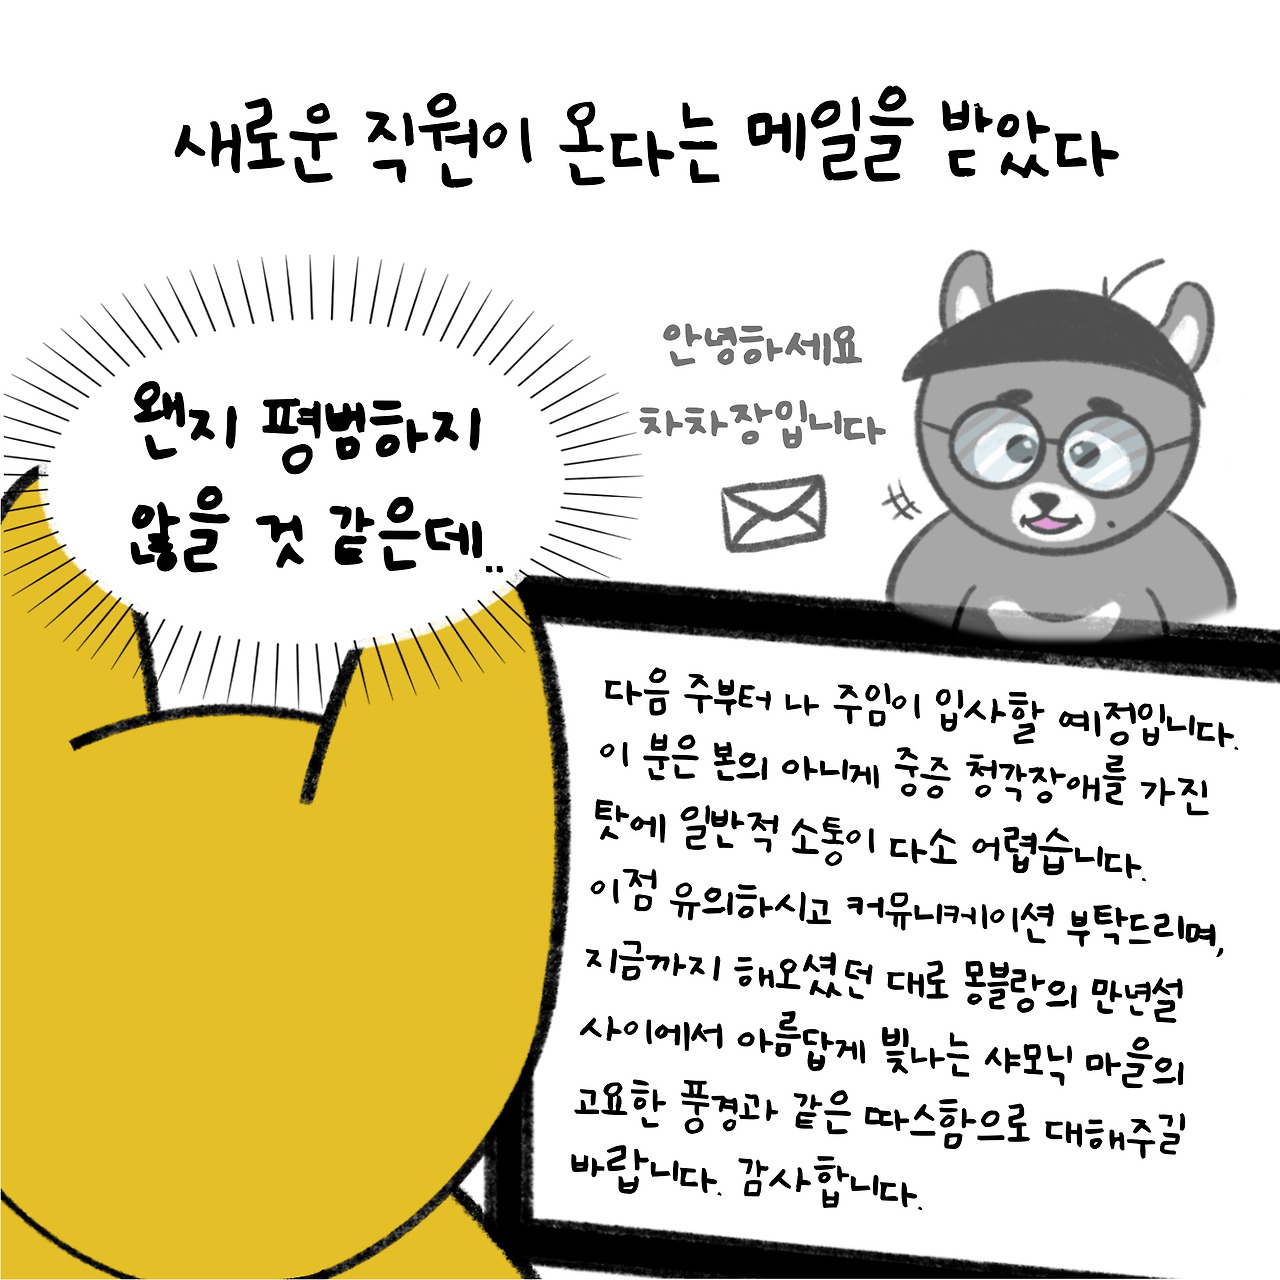 새로운 직원이 온다는 메일을 받았다
왠지 평범하지
않을 것 같은데..
안녕하세요
차차장입니다
다음 주부터 나 주임이 입사할 예정입니다.
이 분은 본의 아니게 중증 청각장애를 가진
탓에 일반적 소통이 다소 어렵습니다.
이점 유의하시고 커뮤니케이션 부탁드리며,
지금까지 해오셨던 대로 몽블랑의 만년설
사이에서 아름답게 빛나는 샤모닉 마을의
고요한 풍경과 같은 따스함으로 대해주길
바랍니다. 감사합니다.